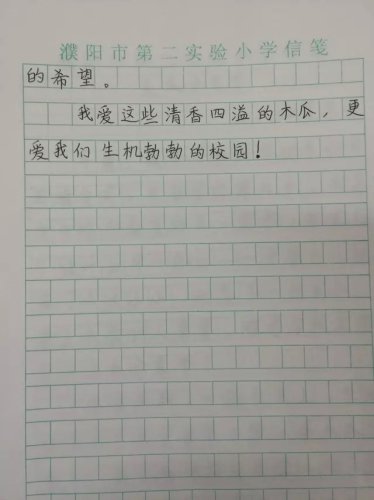 濮阳市第二实验小学信笺
的希望。
我爱这些清香四溢的木瓜，更
爱我们生机勃勃的校园！